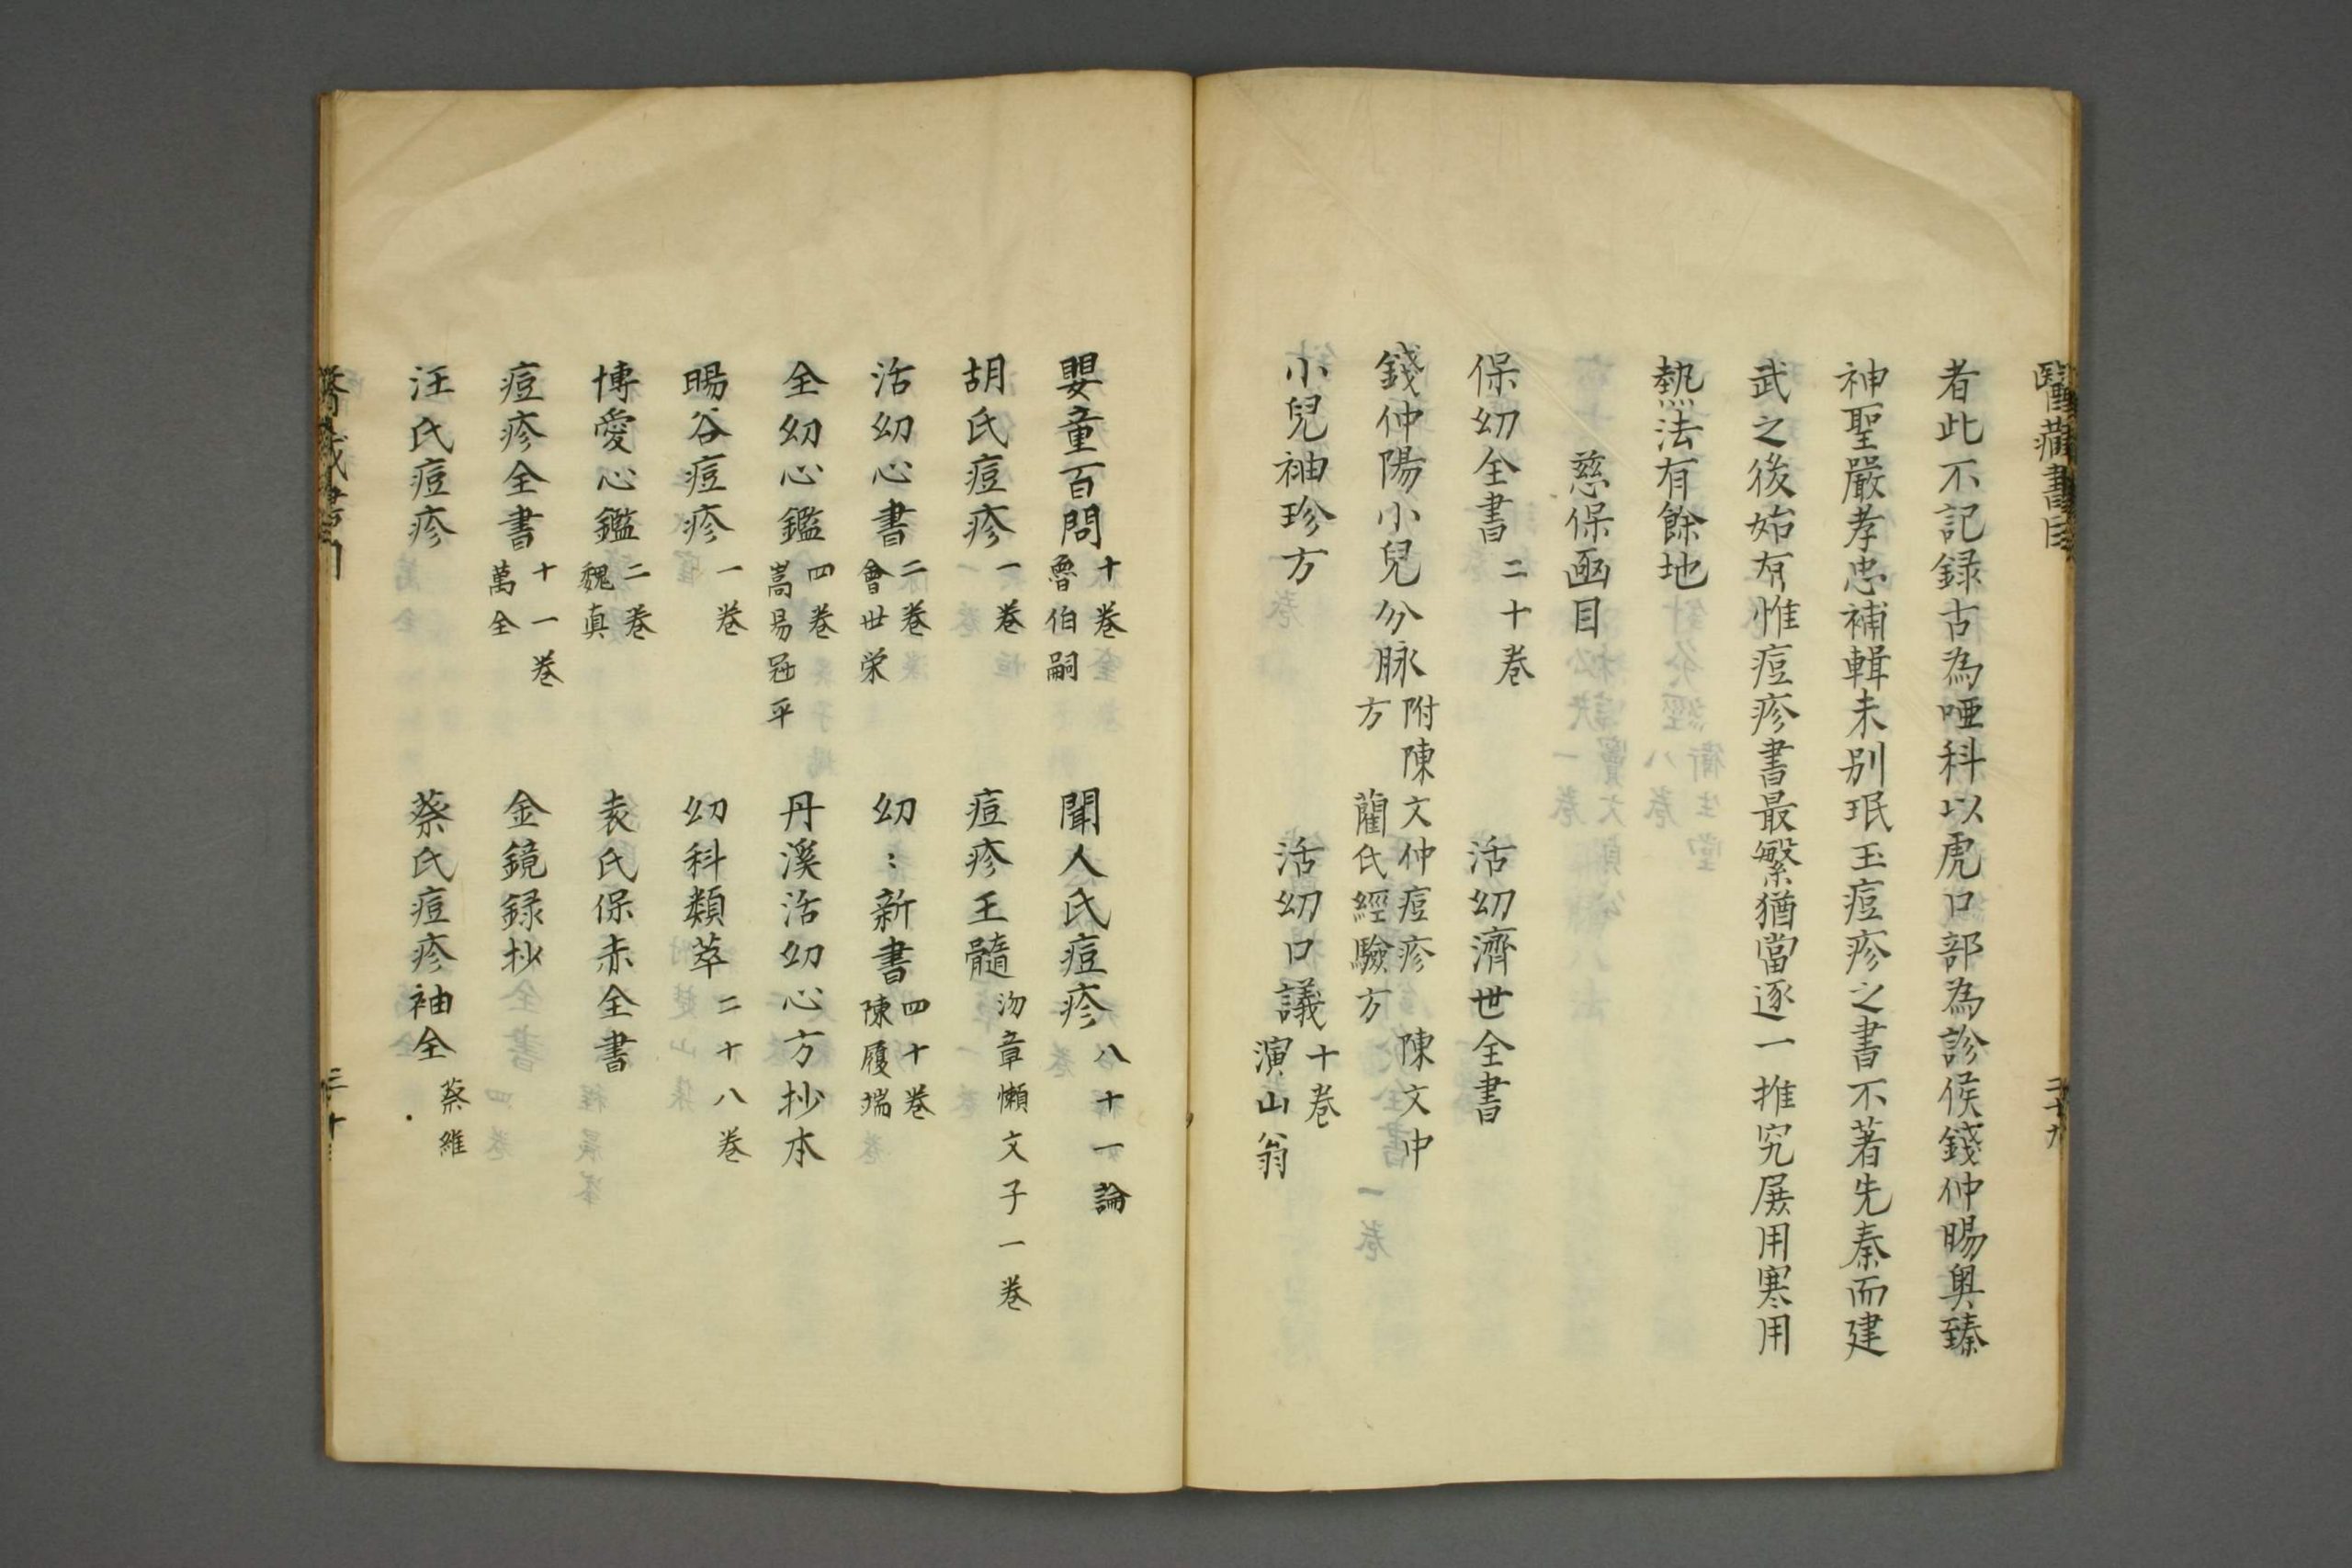 醫藏書目
二十九
者此不記録古為啞科以虎口部為診候錢仲賜奥臻
神聖嚴孝忠補輯未别珉玉痘疹之書不著先秦而建
武之後始有惟痘疹書最繁猶當逐一推究展用寒用
熱法有餘地
慈保凾目
保幼全書 二十卷
活幼濟世全書
錢仲陽小兒分脉 附陳文仲痘疹方
藺氏經驗方 陳文中
小兒袖珍方
活幼口議 十卷 演山翁
嬰童百問 十卷 魯伯嗣
聞人氏痘疹 八十一論
胡氏痘疹 一卷
痘疹王髓 汤章懶文子一卷
活幼心書 二卷 會世荣
幼:新書 四十卷 陳履端
全幼心鑑 四卷 嵩昜冦平
丹溪活幼心方抄本
暘谷痘疹 一卷
幼科類萃 二十八卷
博愛心鑑 二卷 魏真
袁氏保赤全書
痘疹全書 十一卷 萬全
金鏡録抄
汪氏痘疹
蔡氏痘疹袖全 蔡維
三十